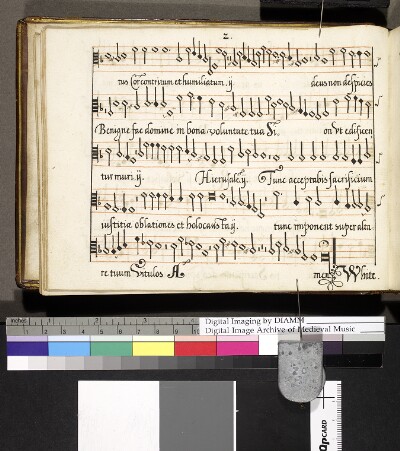 2.
tus Cor contritum et humiliatum .ij. deus non despicies
Benigne fac domine in bona voluntate tua Si. on vt edificen
tur muri .ij. Hierusale .ij. Tunc acceptabis sacrificium
iustitiæ oblationes et holocausta .ij. tunc imponent super alta
re tuum Vitulos A men Winte.
inches
Digital Imaging by DIAMM
Digital Image Archive of Medieval Music
QPCARD